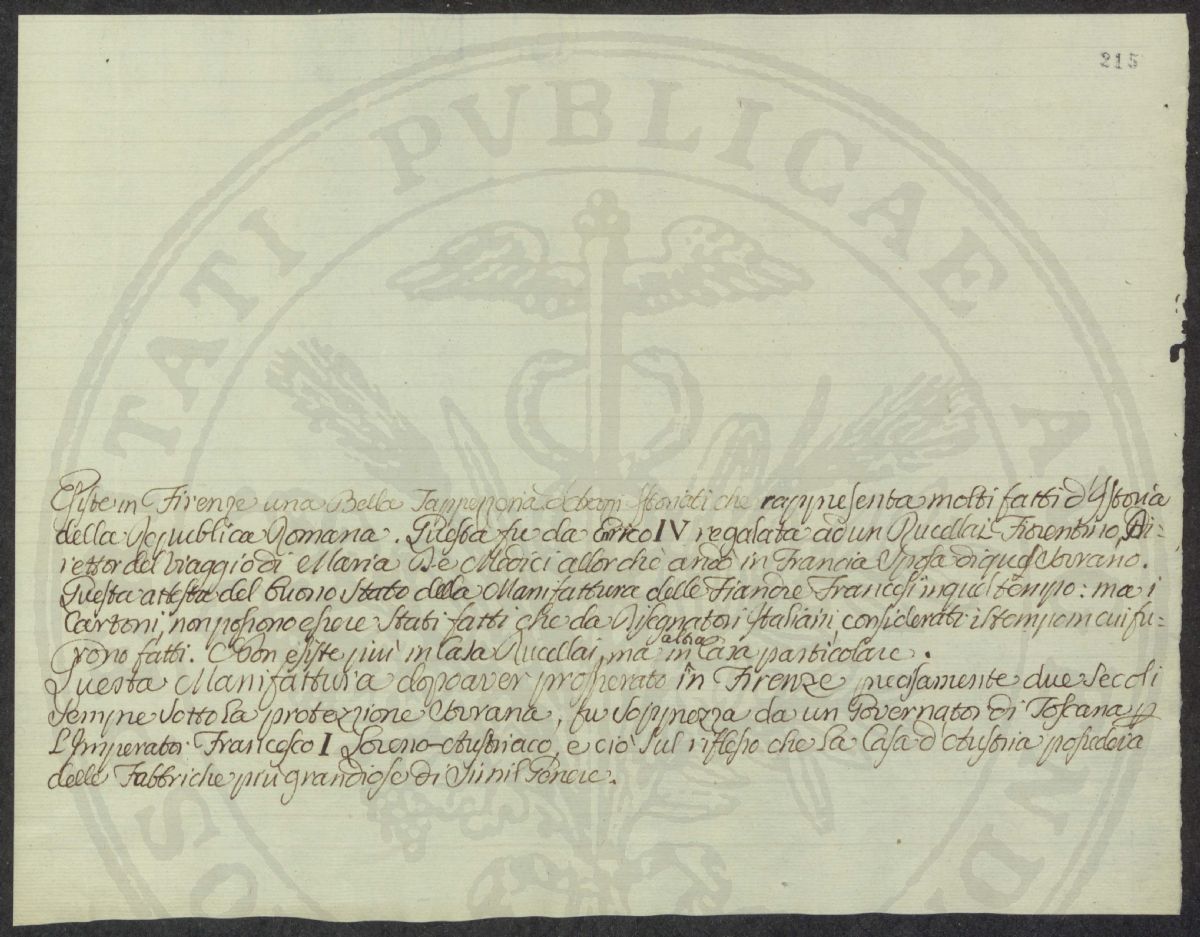 215
Esiste in Firenze una Bella Tappezzeria d'Arazzi istoriati che rappresenta molti fatti d'Istoria
della Republica Romana. Questa fu da Enrico IV regalata ad un Rucellai Fiorentino, Di-
rettor del Viaggio di Maria De Medici allorchè andò in Francia Sposa di quel Sovrano.
Questa attesta del buono Stato della Manifattura delle Fiandre Francesi in quel tempo: ma i
Cartoni non possono essere Stati fatti che da Disegnatori Italiani, considerati i tempi in cui fu-
rono fatti. Non esiste più in Casa Rucellai, ma in altra Casa particolare.
Questa Manifattura dopo aver prosperato in Firenze precisamente due Secoli
Sempre Sotto la protezzione Sovrana, fu Soppressa da un Governator di Toscana p
L'Imperator Francesco I Loreno-Austriaco, e ciò Sul riflesso che La Casa d'Austria possedeva
delle Fabbriche più grandiose di Simil Genere.
STATI PVBLICAE